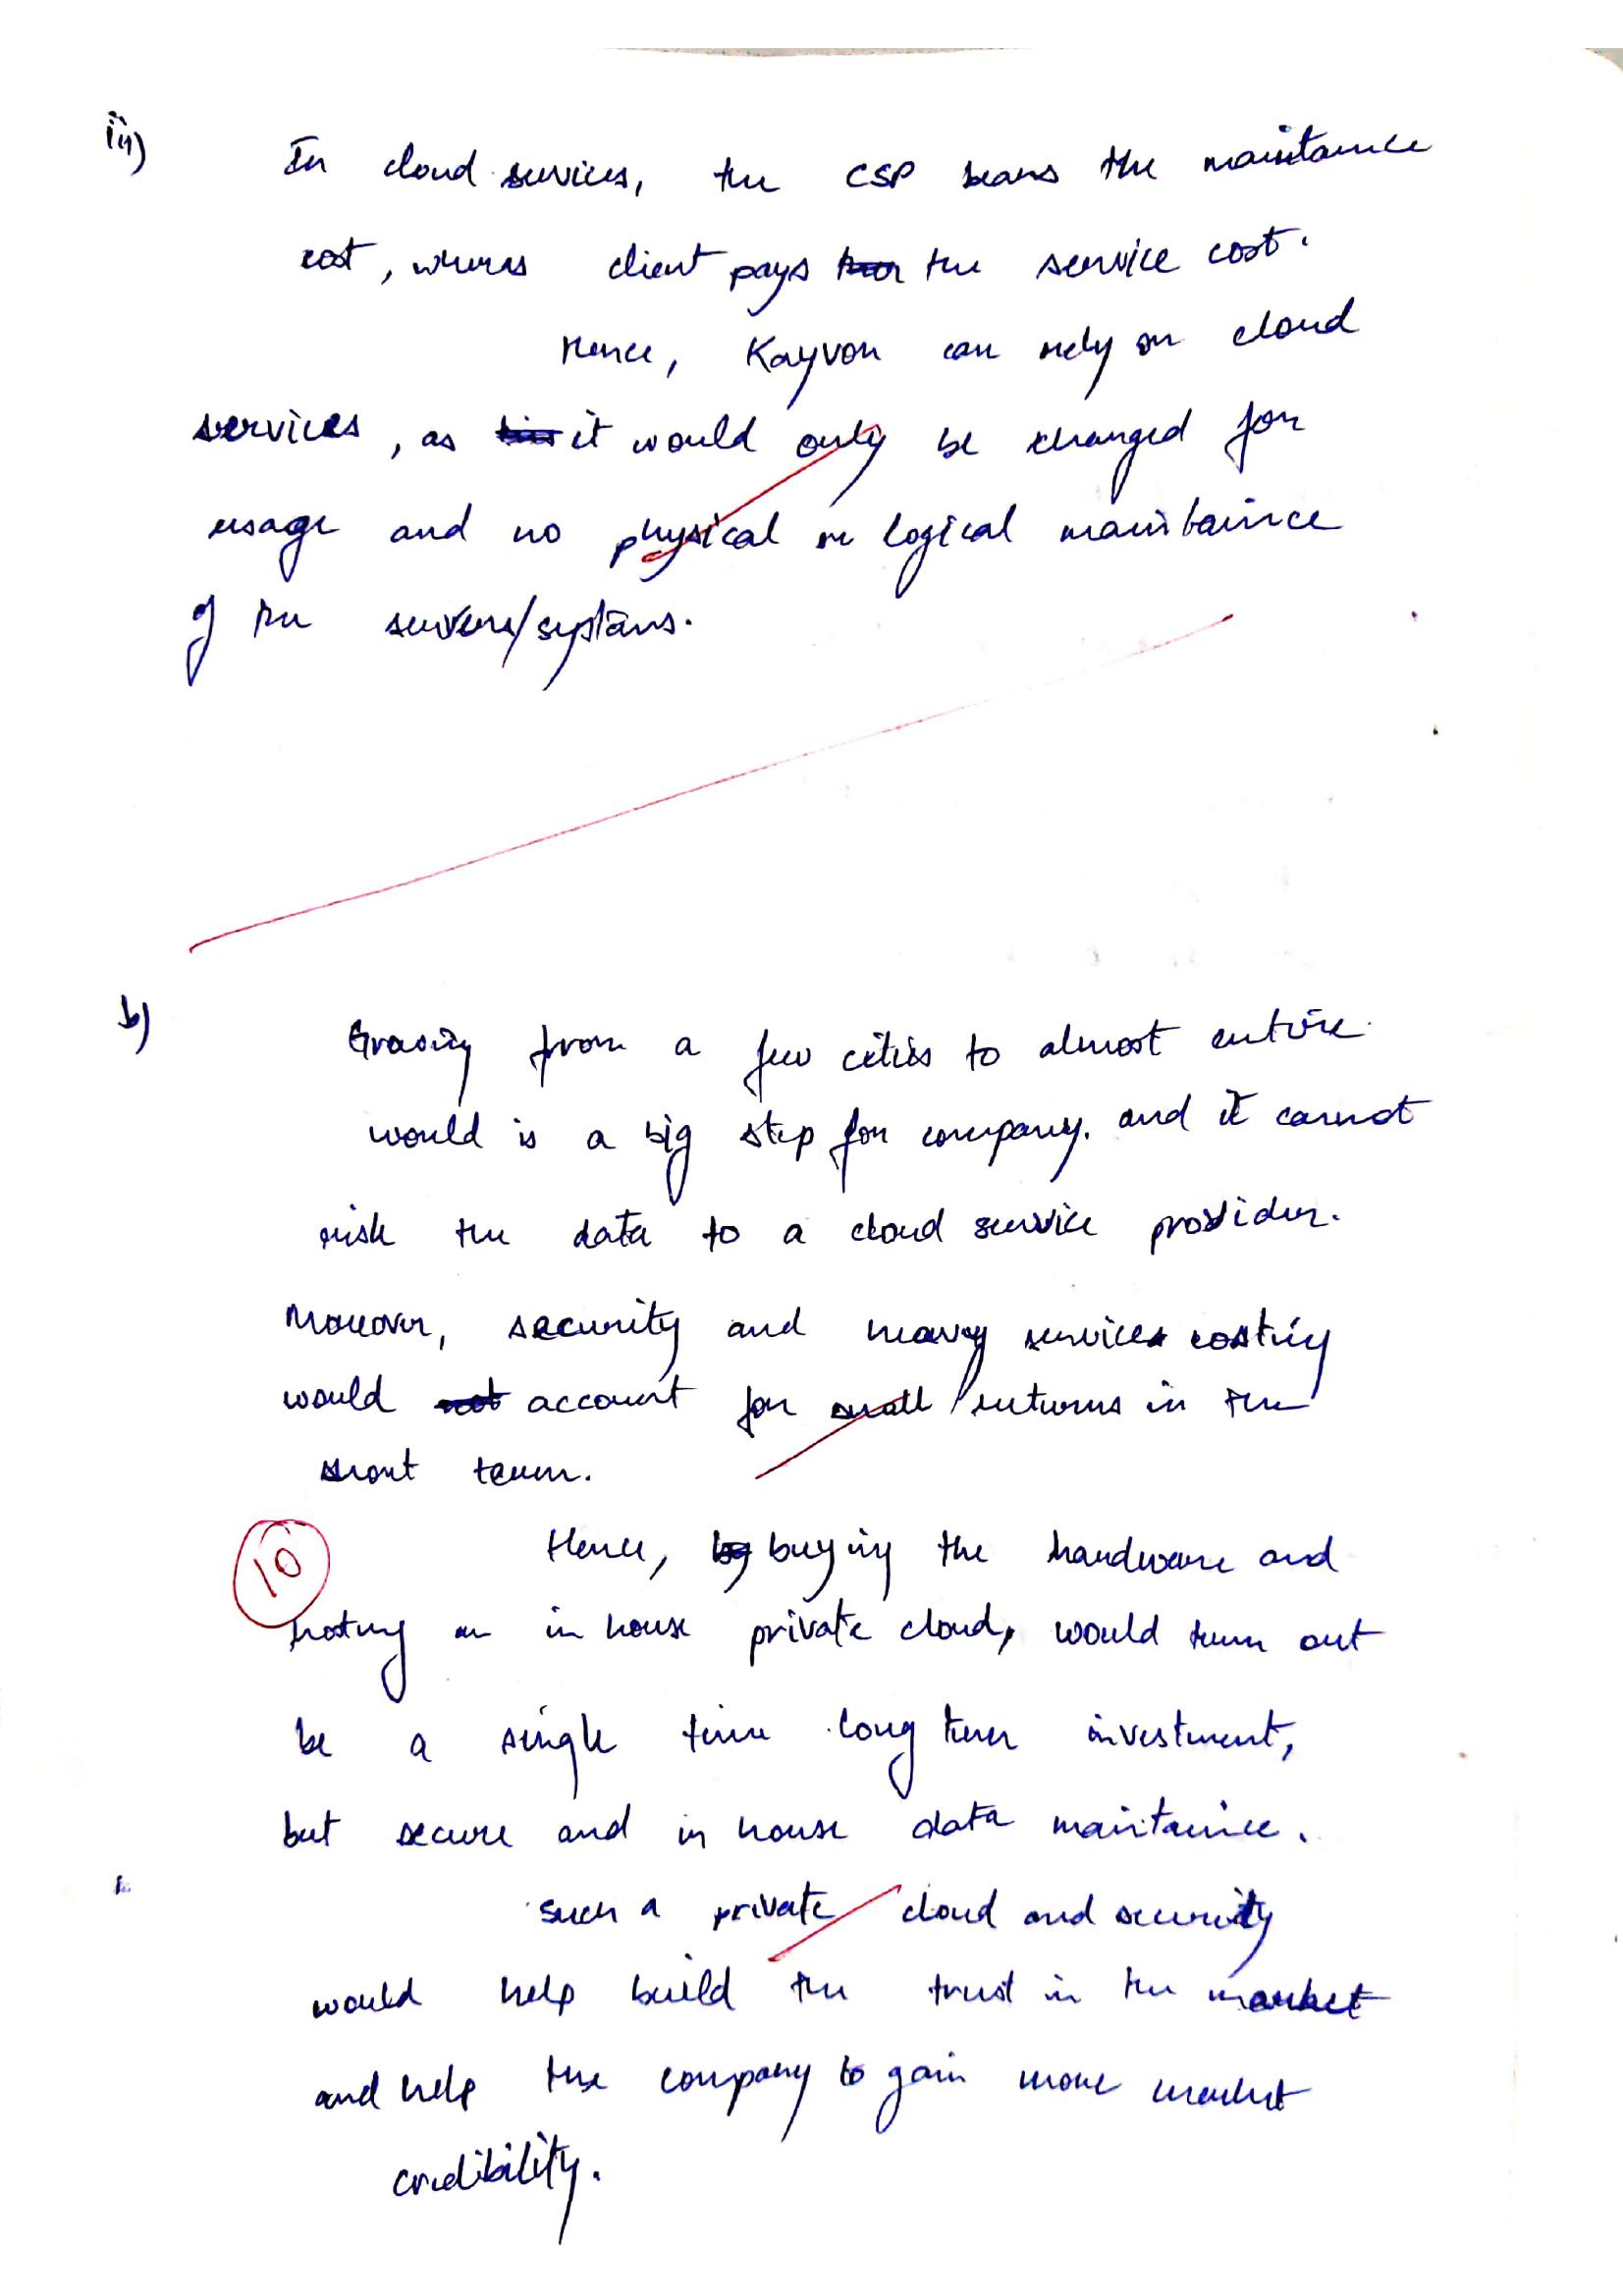 iii) In cloud services, the CSP bears the maintaince
cost, wheras client pays the service cost.
Hence, Kayvon can rely on cloud
services, as it would only be charged for
usage and no physical or logical maintaince
of the servers/systems.
b) Growing from a few cities to almost entire
world is a big step for company. and it cannot
risk the data to a cloud service provider.
Moreover, security and heavy services costing
would account for small returns in the
short term.
Hence, buying the hardware and
10
hosting an in house private cloud, would turn out
be a single time long term investment,
but secure and in house data maintaince.
Such a private cloud and security
would help build the trust in the market
and help the company to gain more market
credibility.